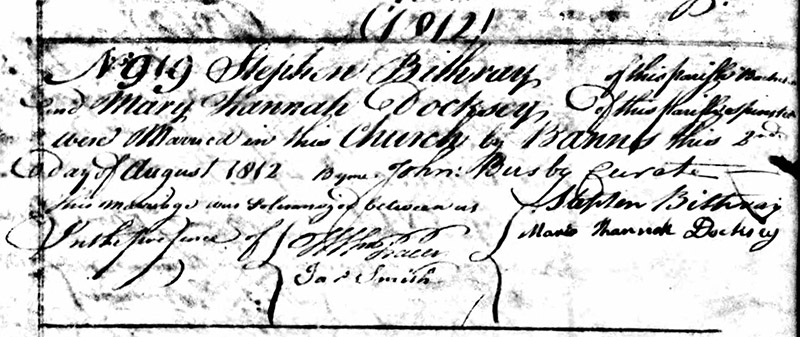 (1812)
No 919 Stephen Bithray of this parish Bachelor
and Mary Hannah Docksey of this parish spinster
were Married in this Church by Banns this 2nd
day of August 1812 By me John Busby Curate
This marriage was solemnized between us Stephen Bithray
In the presence of Mary Hannah Docksey
Jas Smith